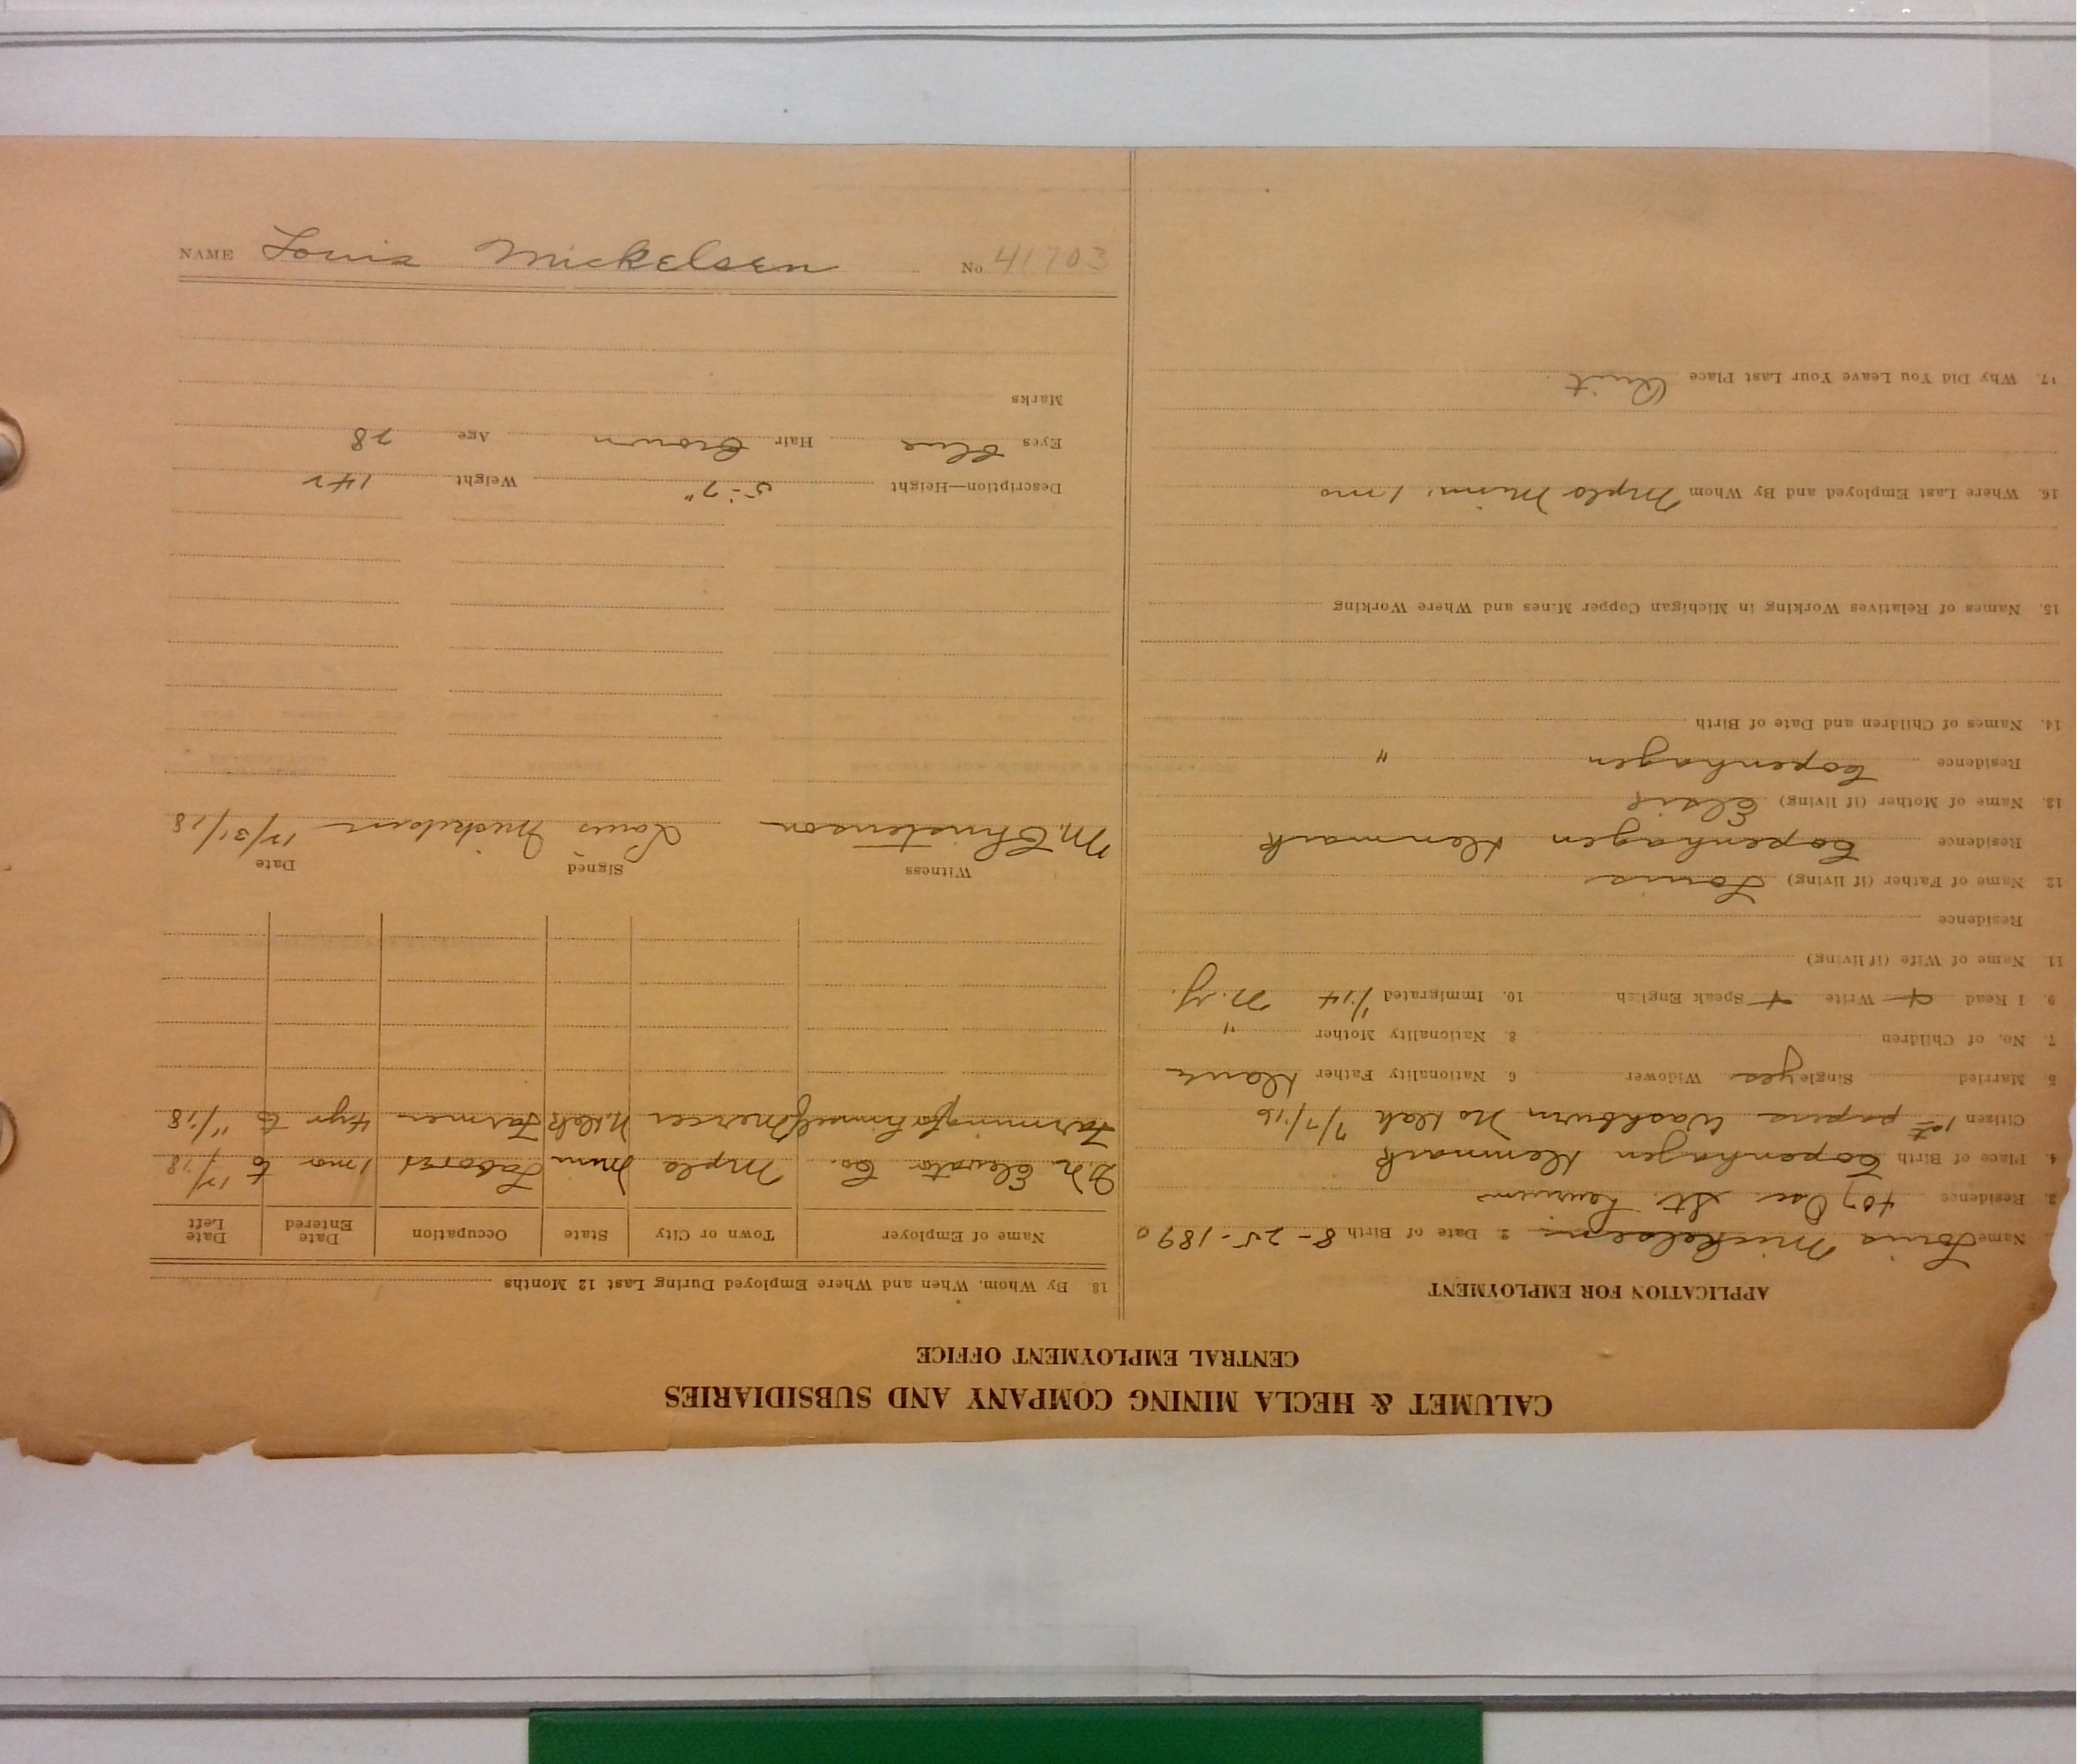 CALUMET & HECLA MINING COMPANY AND SUBSIDIARIES
CENTRAL EMPLOYMENT OFFICE
APPLICATION FOR EMPLOYMENT
Name Louis Mickelsen 2 Date of Birth 8-25-1890
3. Residence 407 Osc St. Laurium
4. Place of Birth Copenhagen Denmark
Citizen 1st papers Washburn No Dak 7/7/16
5. Married Single yes Widower 6. Nationality Father Dane
7. No. of Children 8. Nationality Mother "
9. I Read + Write + Speak English 10. Immigrated 1/14 N.Y.
11. Name of Wife (if living)
Residence
12. Name of Father (if living) Louis
Residence Copenhagen Denmark
13. Name of Mother (if living) Elsie
Residence Copenhagen "
14. Names of Children and Date of Birth
15. Names of Relatives Working in Michigan Copper Mines and Where Working
16. Where Last Employed and By Whom Mpls Minn. 1 mo
17. Why Did You Leave Your Last Place Quit
18. By Whom, When and Where Employed During Last 12 Months
Name of Employer Town or City State Occupation Date Entered Date Left
Elevator Co. Mpls Minn Laborer 1 mo to 12/18
Farming for himself Mercer N.Dak Farmer 4 yr to 11/18
Witness Signed Date
M. Christenson Louis Mickelsen 12/31/18
Description—Height 5-7" Weight 142
Eyes blue Hair Brown Age 28
Marks
NAME Louis Mickelsen No 41703